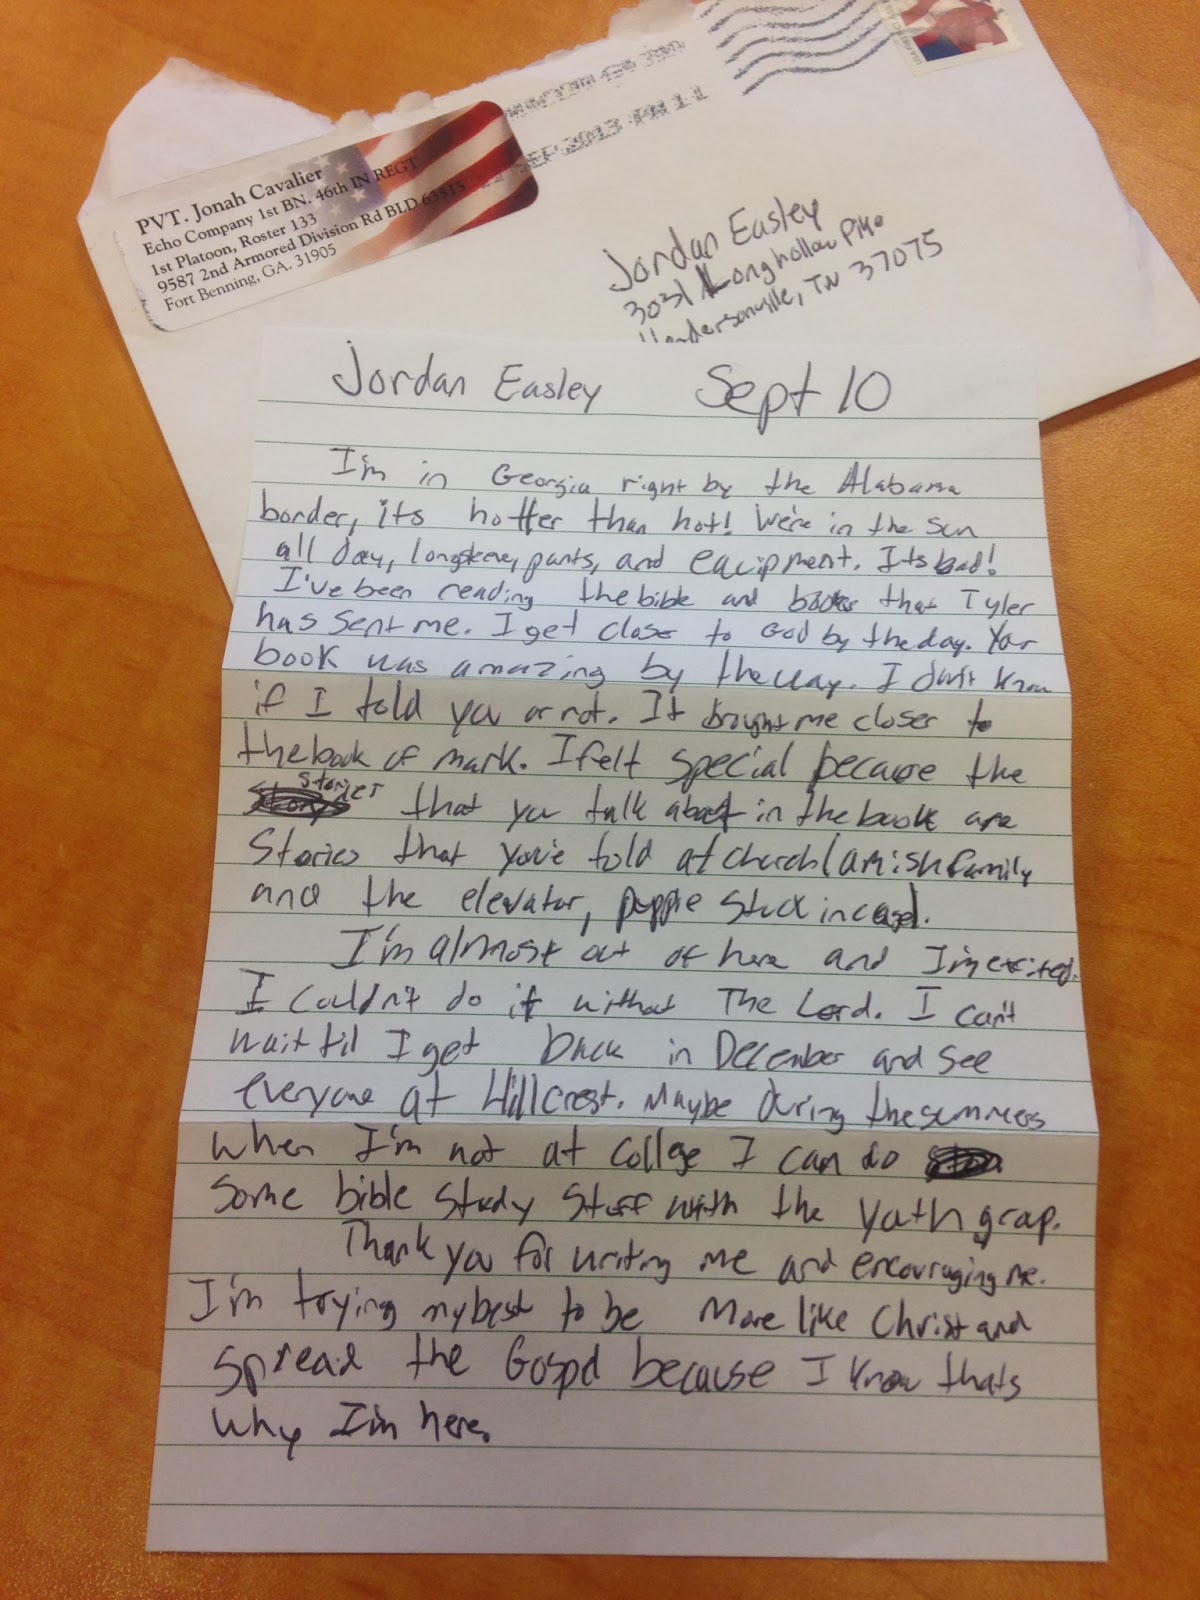 PVT. Jonah Cavalier
Echo Company 1st BN. 46th IN REGT
1st Platoon, Roster 133
9587 2nd Armored Division Rd BLD 63515
Fort Benning, GA. 31905
SEP 2013 PM 1 L
Jordan Easley
3031 Longhollow Pike
Hendersonville, TN 37075
Jordan Easley Sept 10
I'm in Georgia right by the Alabama
border, its hotter than hot! We're in the sun
all day, longsleeve, pants, and equipment. Its bad!
I've been reading the bible and books that Tyler
has sent me. I get closer to God by the day. Your
book was amazing by the way. I don't know
if I told you or not. It brought me closer to
the book of mark. I felt special because the
stories that you talk about in the book are
Stories that you've told at church (amish family
and the elevator, puppie stuck in case).
I'm almost out of here and I'm excited.
I couldn't do it without The Lord. I can't
wait til I get back in December and see
everyone at Hillcrest. Maybe during the summers
when I'm not at college I can do
some bible study stuff with the youth group.
Thank you for writing me and encouraging me.
I'm trying my best to be more like Christ and
spread the Gospel because I know thats
why I'm here.